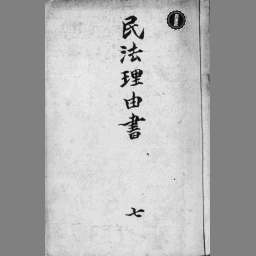 民法理由書
七